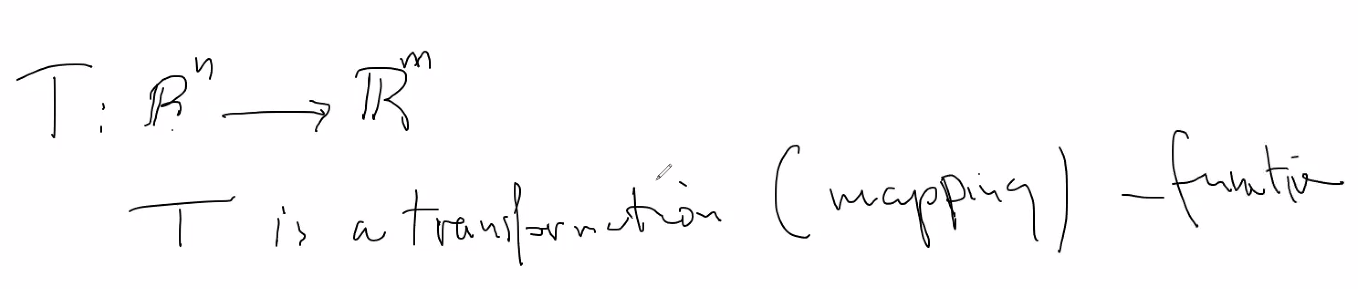 T: ℝⁿ ⟶ ℝᵐ
T is a transformation (mapping) - function